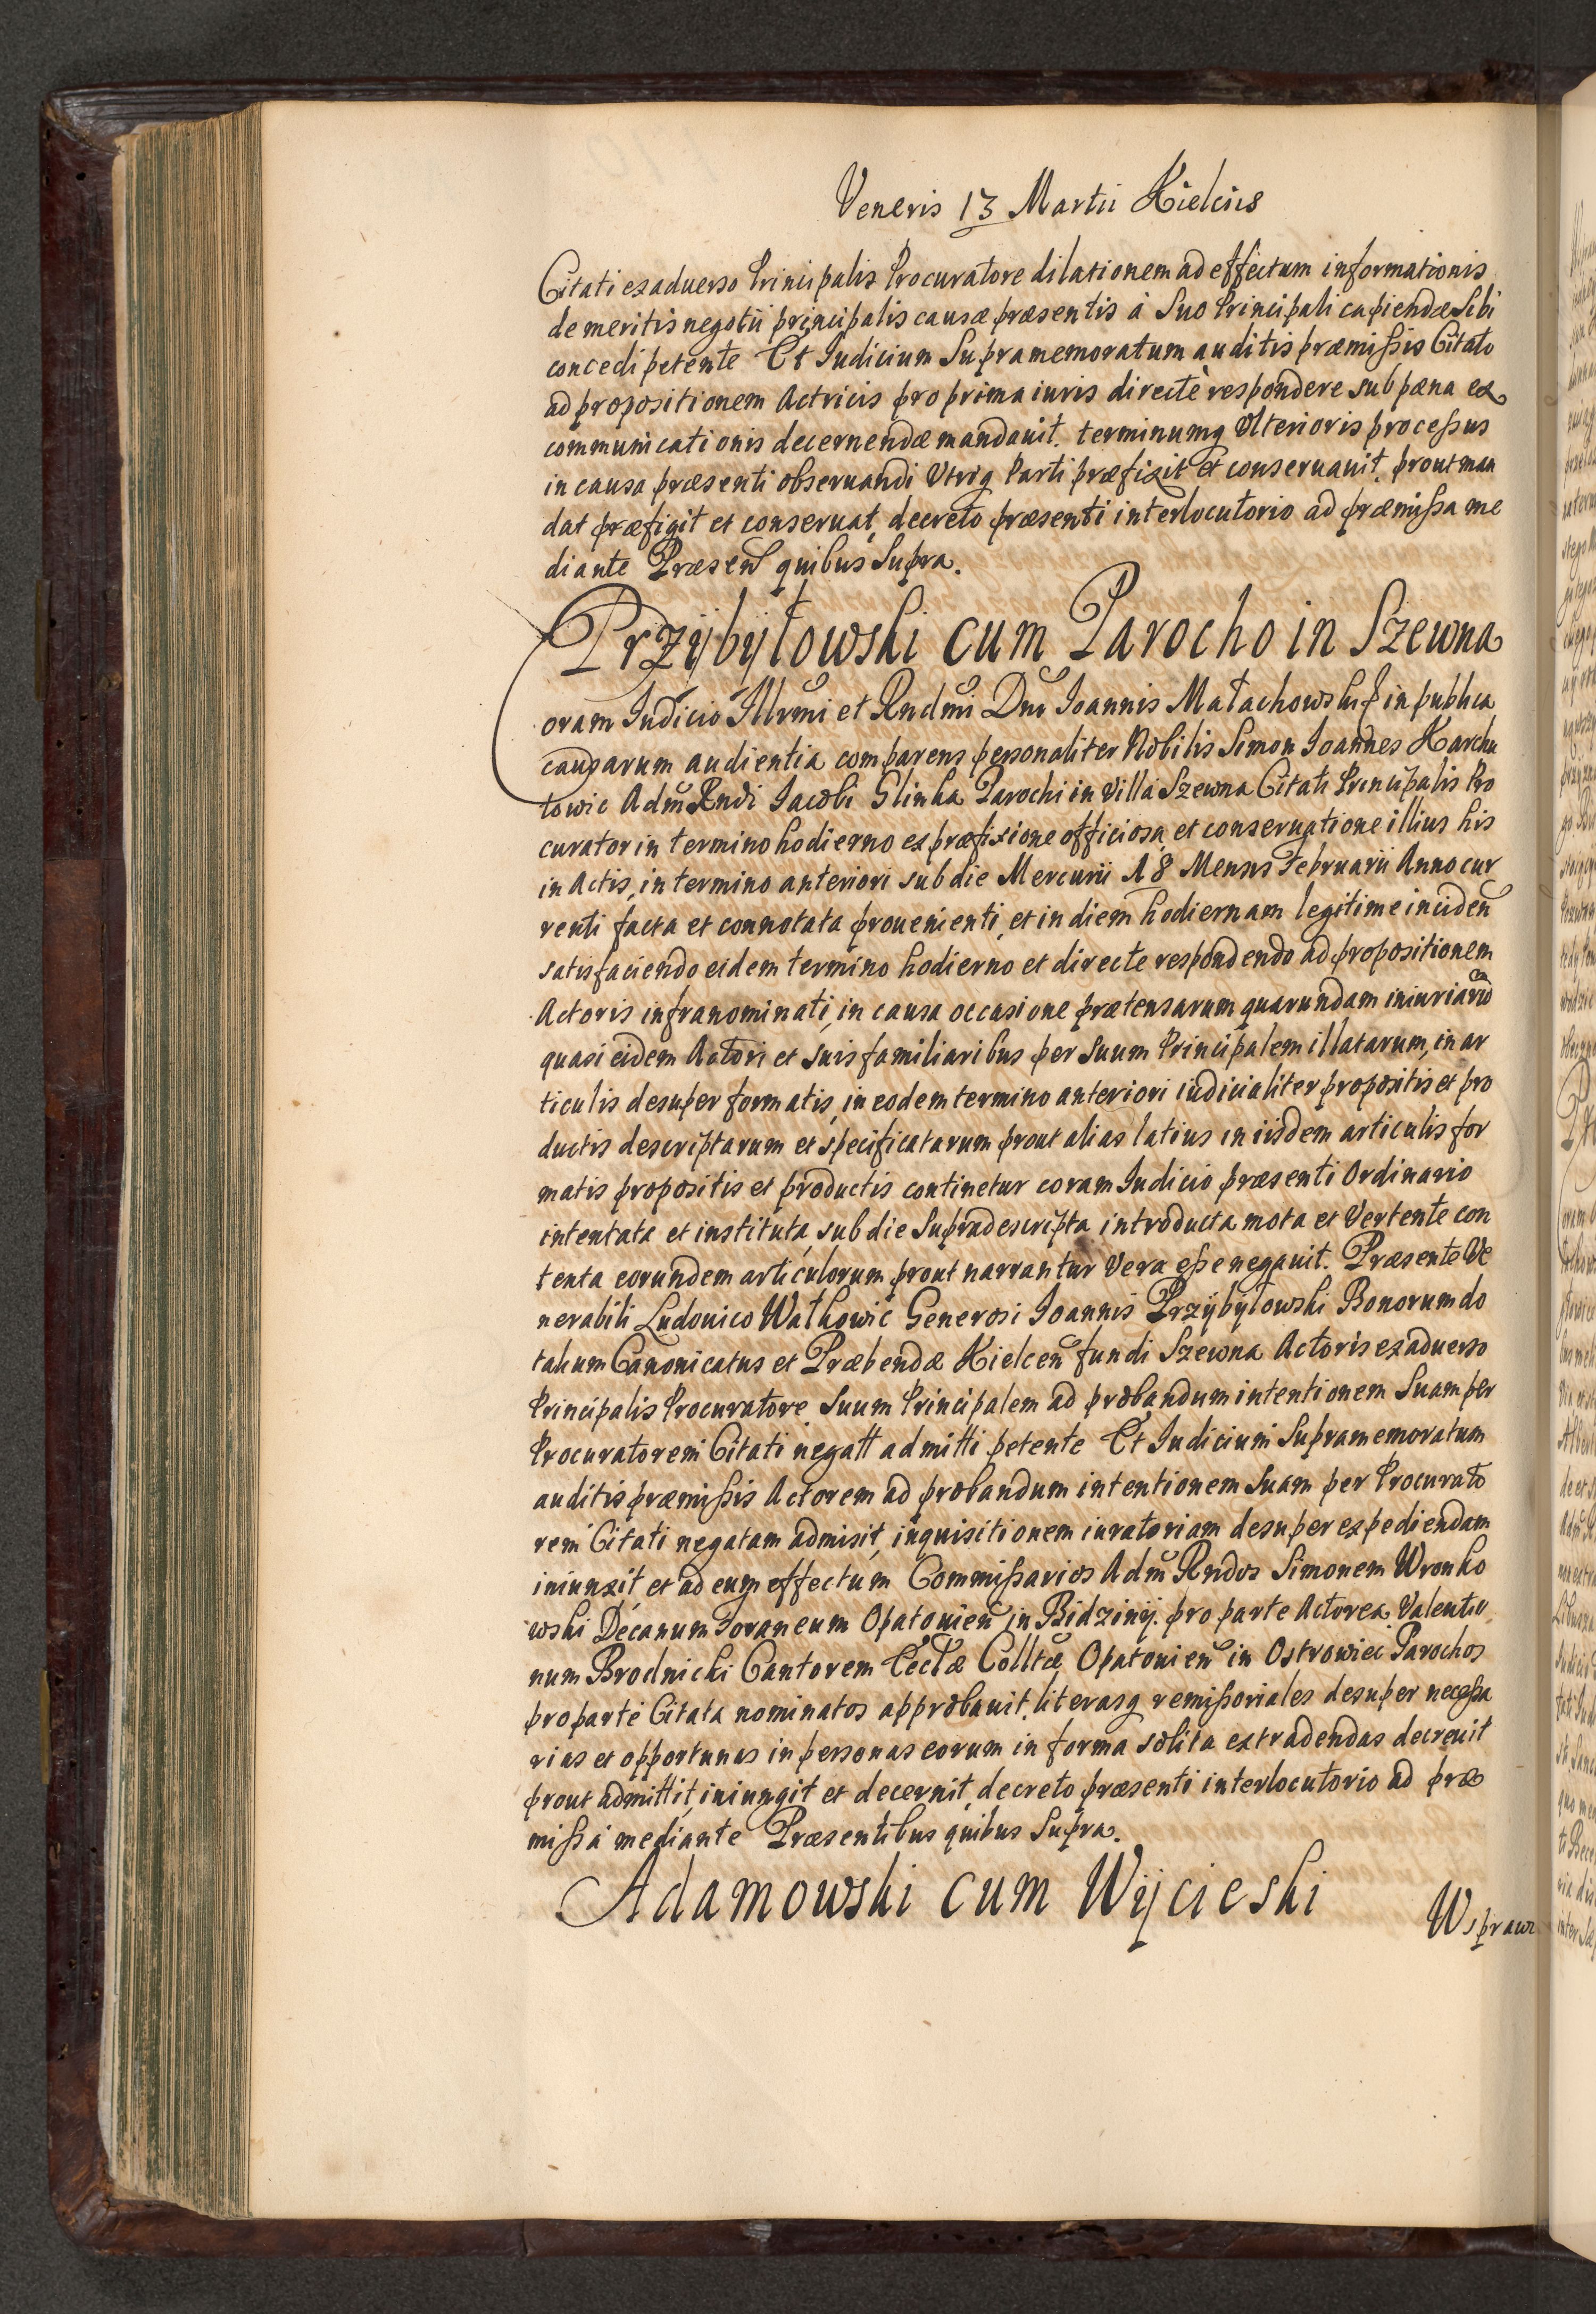 Veneris 13 Martii Kielciis
Citati exaduerso Principalis Procuratore dilationem ad effectum informationis
de meritis negotii principalis causæ præsentis à Suo Principali capiendæ Sibi
concedi petente Et Iudicium Supramemoratum auditis præmißis Citato
ad propositionem Actricis pro prima iuris directè respondere sub pæna ex
communicationis decernendæ mandauit. terminumq Vlterioris proceßus
in causa præsenti obseruandi Vtriq Parti præfixit et conseruauit, prout man
dat præfigit et conseruat, decreto præsenti interlocutorio ad præmißa me
diante Præsen quibus Supra.
Przÿbÿłowski cum Parocho in Szewna
Coram Iudicio Illrmi et Rndmi Dni Ioannis Małachowski in publica
causarum audientia comparens personaliter Nobilis Simon Ioannes Karchu
towic Adm Rndi Iacobi Glinka Parochi in Villa Szewna Citati Principalis Pro
curator in termino hodierno ex præfixione officiosa et conseruatione illius his
in Actis, in termino anteriori sub die Mercurii 18 Mensis Februarii Anno cur
renti facta et connotata prouenienti, et in diem hodiernam legitime inciden
satisfaciendo eidem termino hodierno et directe respondendo ad propositionem
Actoris infranominati, in causa occasione prætensarum quarundam iniuriaru
quasi eidem Actori et suis familiaribus per Suum Principalem illatarum, in ar
ticulis desuper formatis, in eodem termino anteriori iudicialiter propositis et pro
ductis descriptarum et specificatarum prout alias latius in iisdem articulis for
matis propositis et productis continetur coram Iudicio præsenti Ordinario
intentata et instituta, sub die Supradescripta introducta mota et Vertente con
tenta eorundem articulorum prout narrantur Vera eße negauit. Præsente Ve
nerabili Ludouico Wałkowic Generosi Ioannis Przÿbÿłowski Bonorum do
talium Canonicatus et Præbendæ Kielcen fundi Szewna Actoris exaduerso
Principalis Procuratore Suum Principalem ad probandum intentionem Suam per
Procuratorem Citati negatt admitti petente Et Iudicium Supramemoratum
auditis præmißis Actorem ad probandum intentionem Suam per Procurato
rem Citati negatam admisit, inquisitionem iuratoriam desuper expediendam
iniunxit, et ad eum effectum Commißarios Adm Rndos Simonem Wronko
wski Decanum Foraneum Opatouien in Bidzinÿ pro parte Actorea Valenti
num Brodnicki Cantorem Eccłæ Colltæ Opatouien in Ostrowiec Parochos
pro parte Citata nominatos approbauit. literasq remißoriales desuper neceßa
rias et opportunas in personas eorum in forma solita extradendas decreuit
prout admittit, iniungit et decernit, decreto præsenti interlocutorio ad præ
mißa mediante Præsentibus quibus Supra.
Adamowski cum Wÿcieski
Wspraw